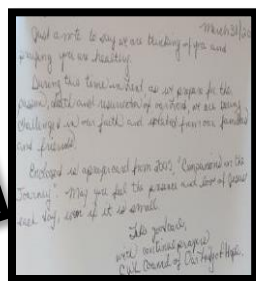 March 31/20
Just a note to say we are thinking of you and
praying you are healthy.
During this time in Lent as we prepare for the
passion, death and resurrection of our Lord, we are being
challenged in our faith and isolated from our families
and friends.
Enclosed is a prayer card from 2002, "Companions on the
Journey". May you feel the presence and love of Jesus
each day, even if it is small.
Take care,
with continued prayers
CWL Council of Our Lady of Hope.